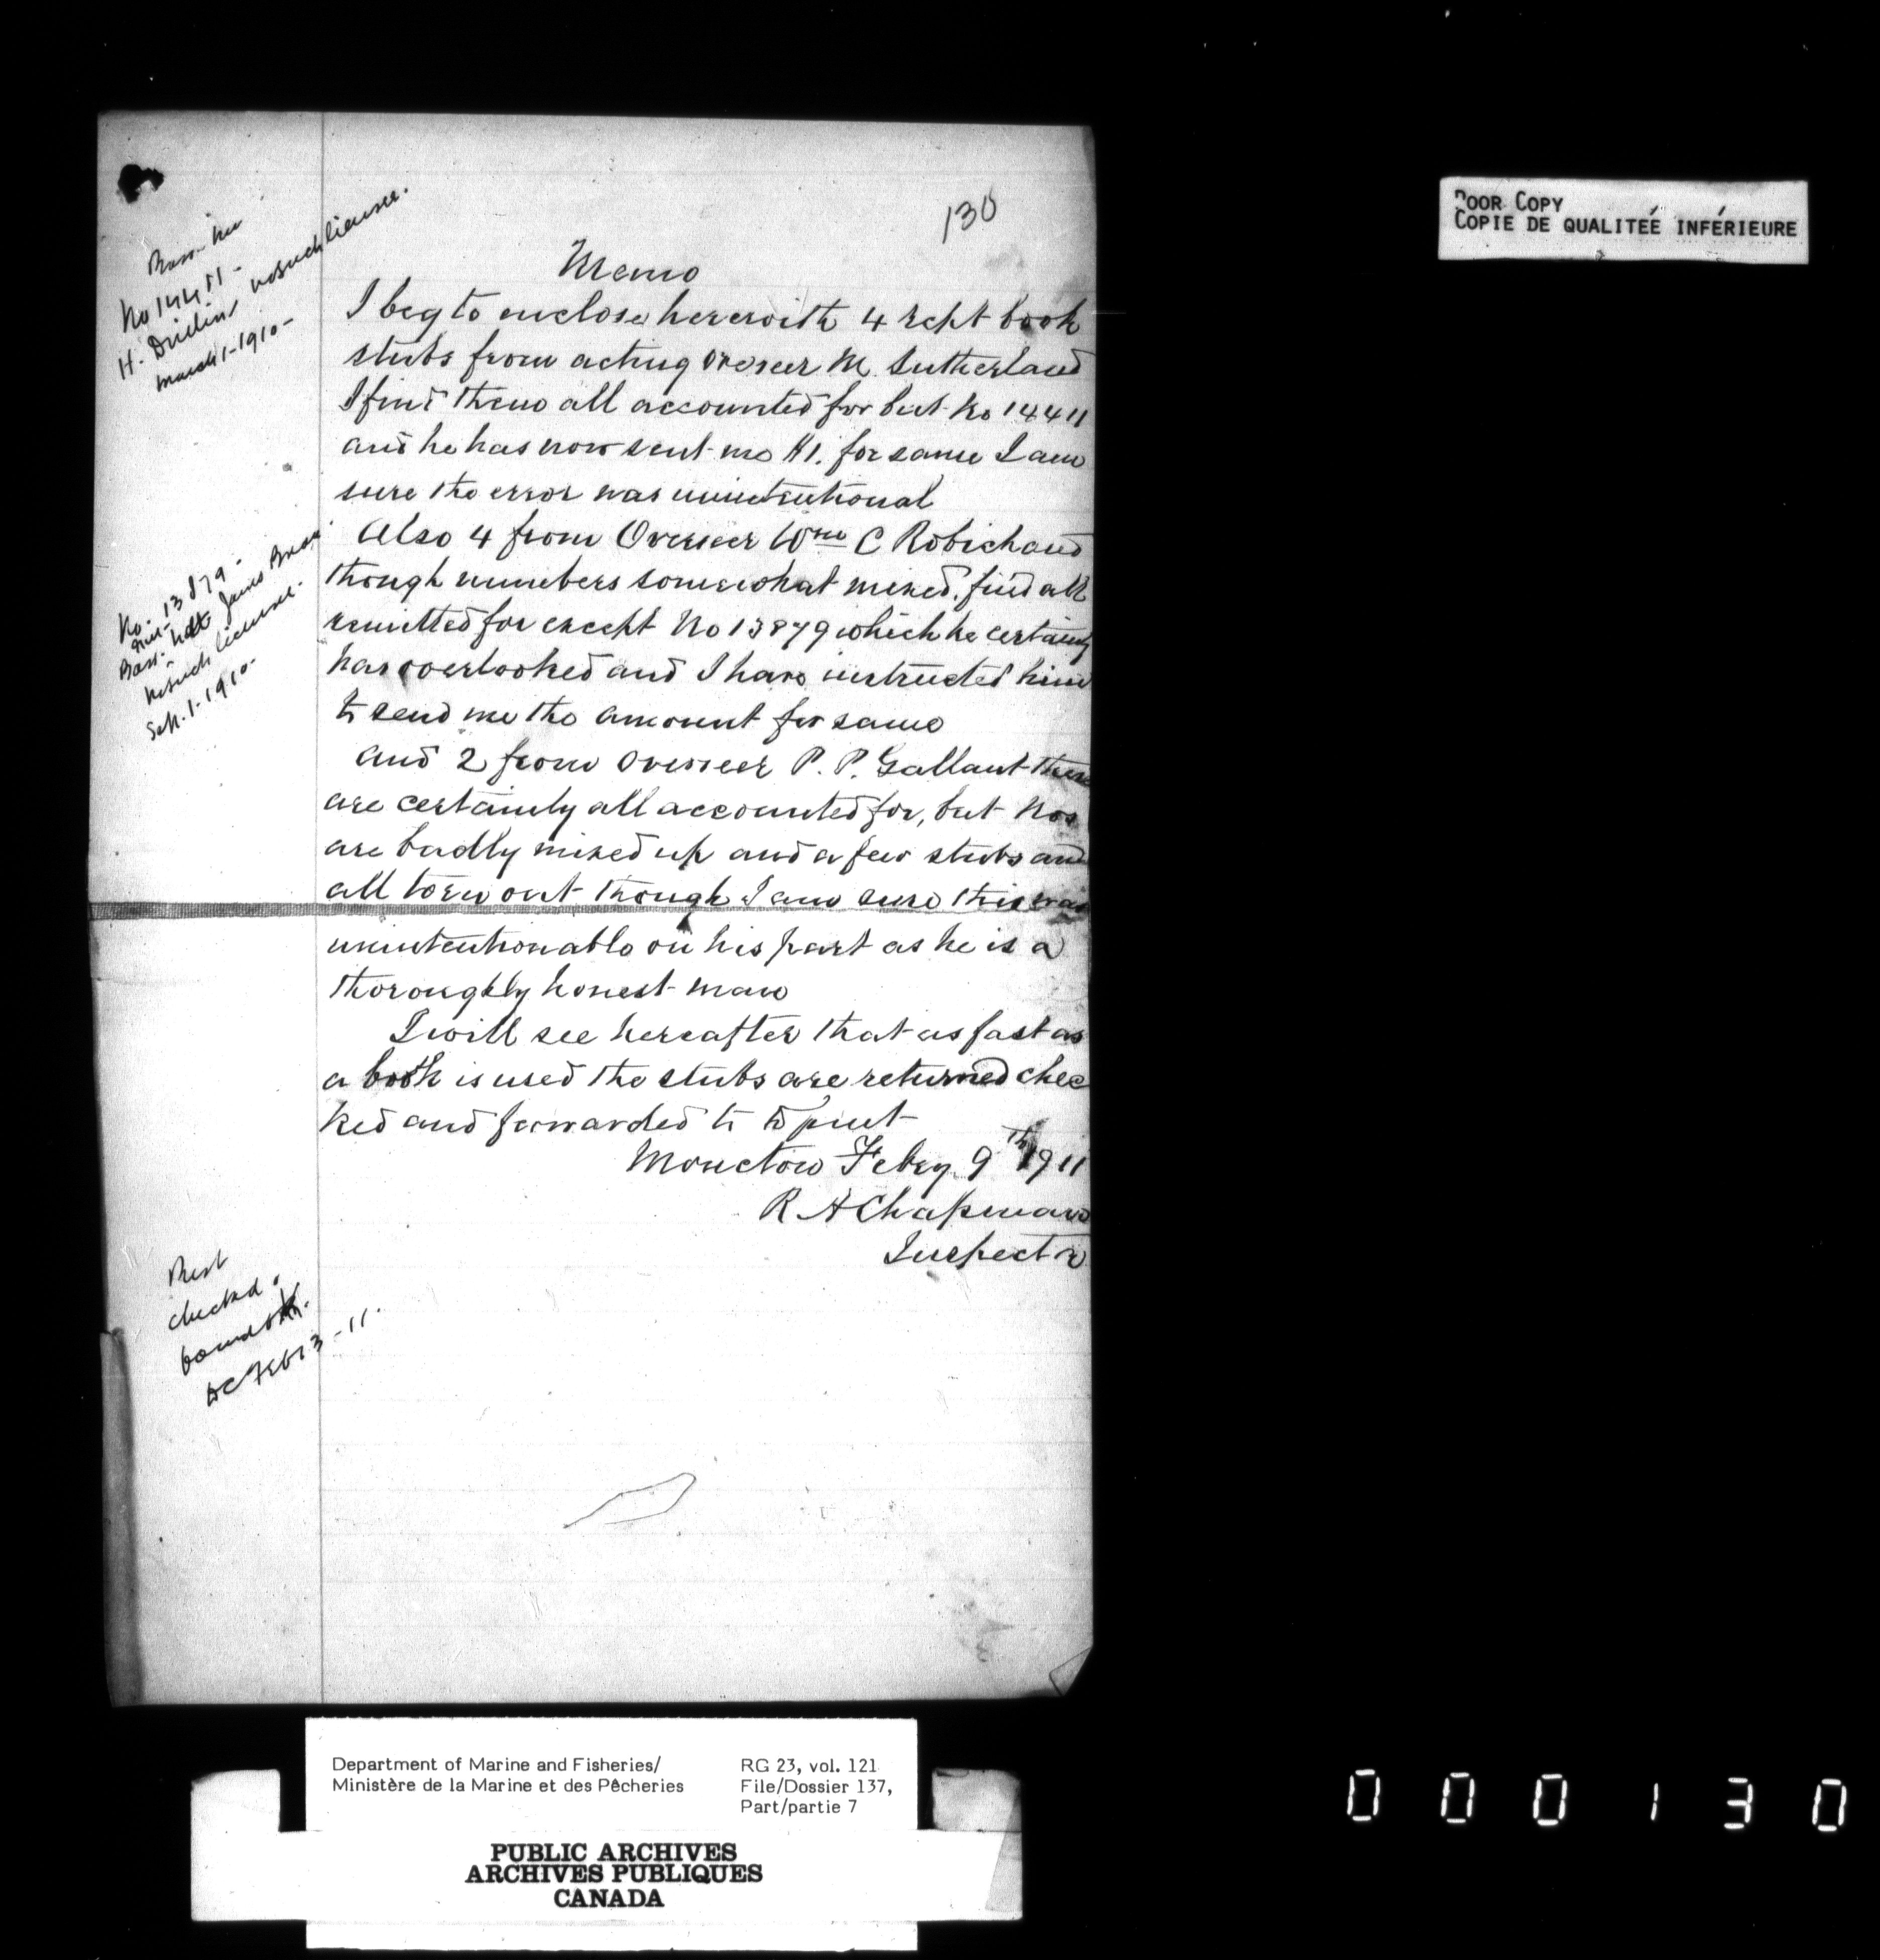 130
Memo
I beg to enclose herewith 4 rcpt book
stubs from acting Overseer M. Sutherland
I find them all accounted for but No 14411
and he has now sent me $1. for same I am
sure the error was unintentional
Also 4 from Overseer Wm C Robichaud
though numbers somewhat mixed, find all
remitted for except No 13879 which he certainly
has overlooked and I have instructed him
to send me the amount for same
and 2 from Overseer P. P. Gallant these
are certainly all accounted for, but Nos
are badly mixed up and a few stubs and
all torn out though I am sure this was
unintentionable on his part as he is a
thoroughly honest man
I will see hereafter that as fast as
a book is used the stubs are returned chec
ked and forwarded to Dpmt
Moncton Feby 9th 1911
R A Chapman
Inspector
No 14411 -
H. no such license.
March 1-1910-
No. 13879-
Bass- James
no such license.
Sept. 1-1910-
Rest
checked &
found OK.
Feb 13-11.
POOR COPY
COPIE DE QUALITÉE INFÉRIEURE
Department of Marine and Fisheries/
Ministère de la Marine et des Pêcheries
RG 23, vol. 121
File/Dossier 137,
Part/partie 7
PUBLIC ARCHIVES
ARCHIVES PUBLIQUES
CANADA
000130